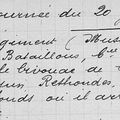 ournée du 20 j
gement (Mus
Bataillons, Cie
le bivouac de
Rethondes,
onds où il arr